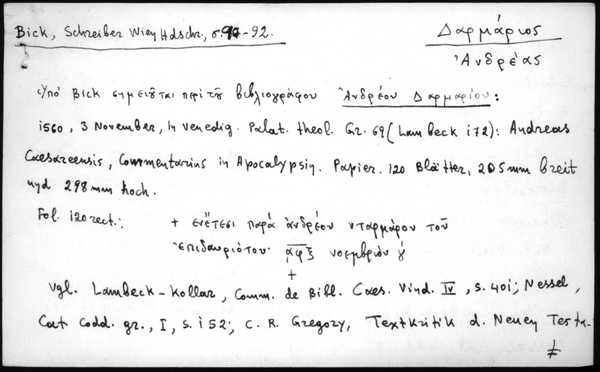 Bick, Schreiber Wien Hdschr., σ. 90-92.
Δαρμάριος
Ἀνδρέας
Ὑπό Bick σημειοῦται περί τοῦ βιβλιογράφου Ἀνδρέου Δαρμαρίου:
1560, 3 November, in Venedig. Palat. theol. Gr. 69 (Lambeck 172): Andreas
Caesareensis, Commentarius in Apocalypsin. Papier. 120 Blätter, 205 mm breit
und 298 mm hoch.
Fol. 120 rect.: + ἐνέτεσι παρά ἀνδρέου νταρμάρου τοῦ
ἐπιδαυριότου· αφξ νοεμβρίου γ́
+
Vgl. Lambeck-Kollar, Comm. de Bibl. Caes. Vind. IV, S. 401; Nessel,
Cat Codd. gr., I, S. 152; C. R. Gregory, Textkritik d. Neuen Testa-